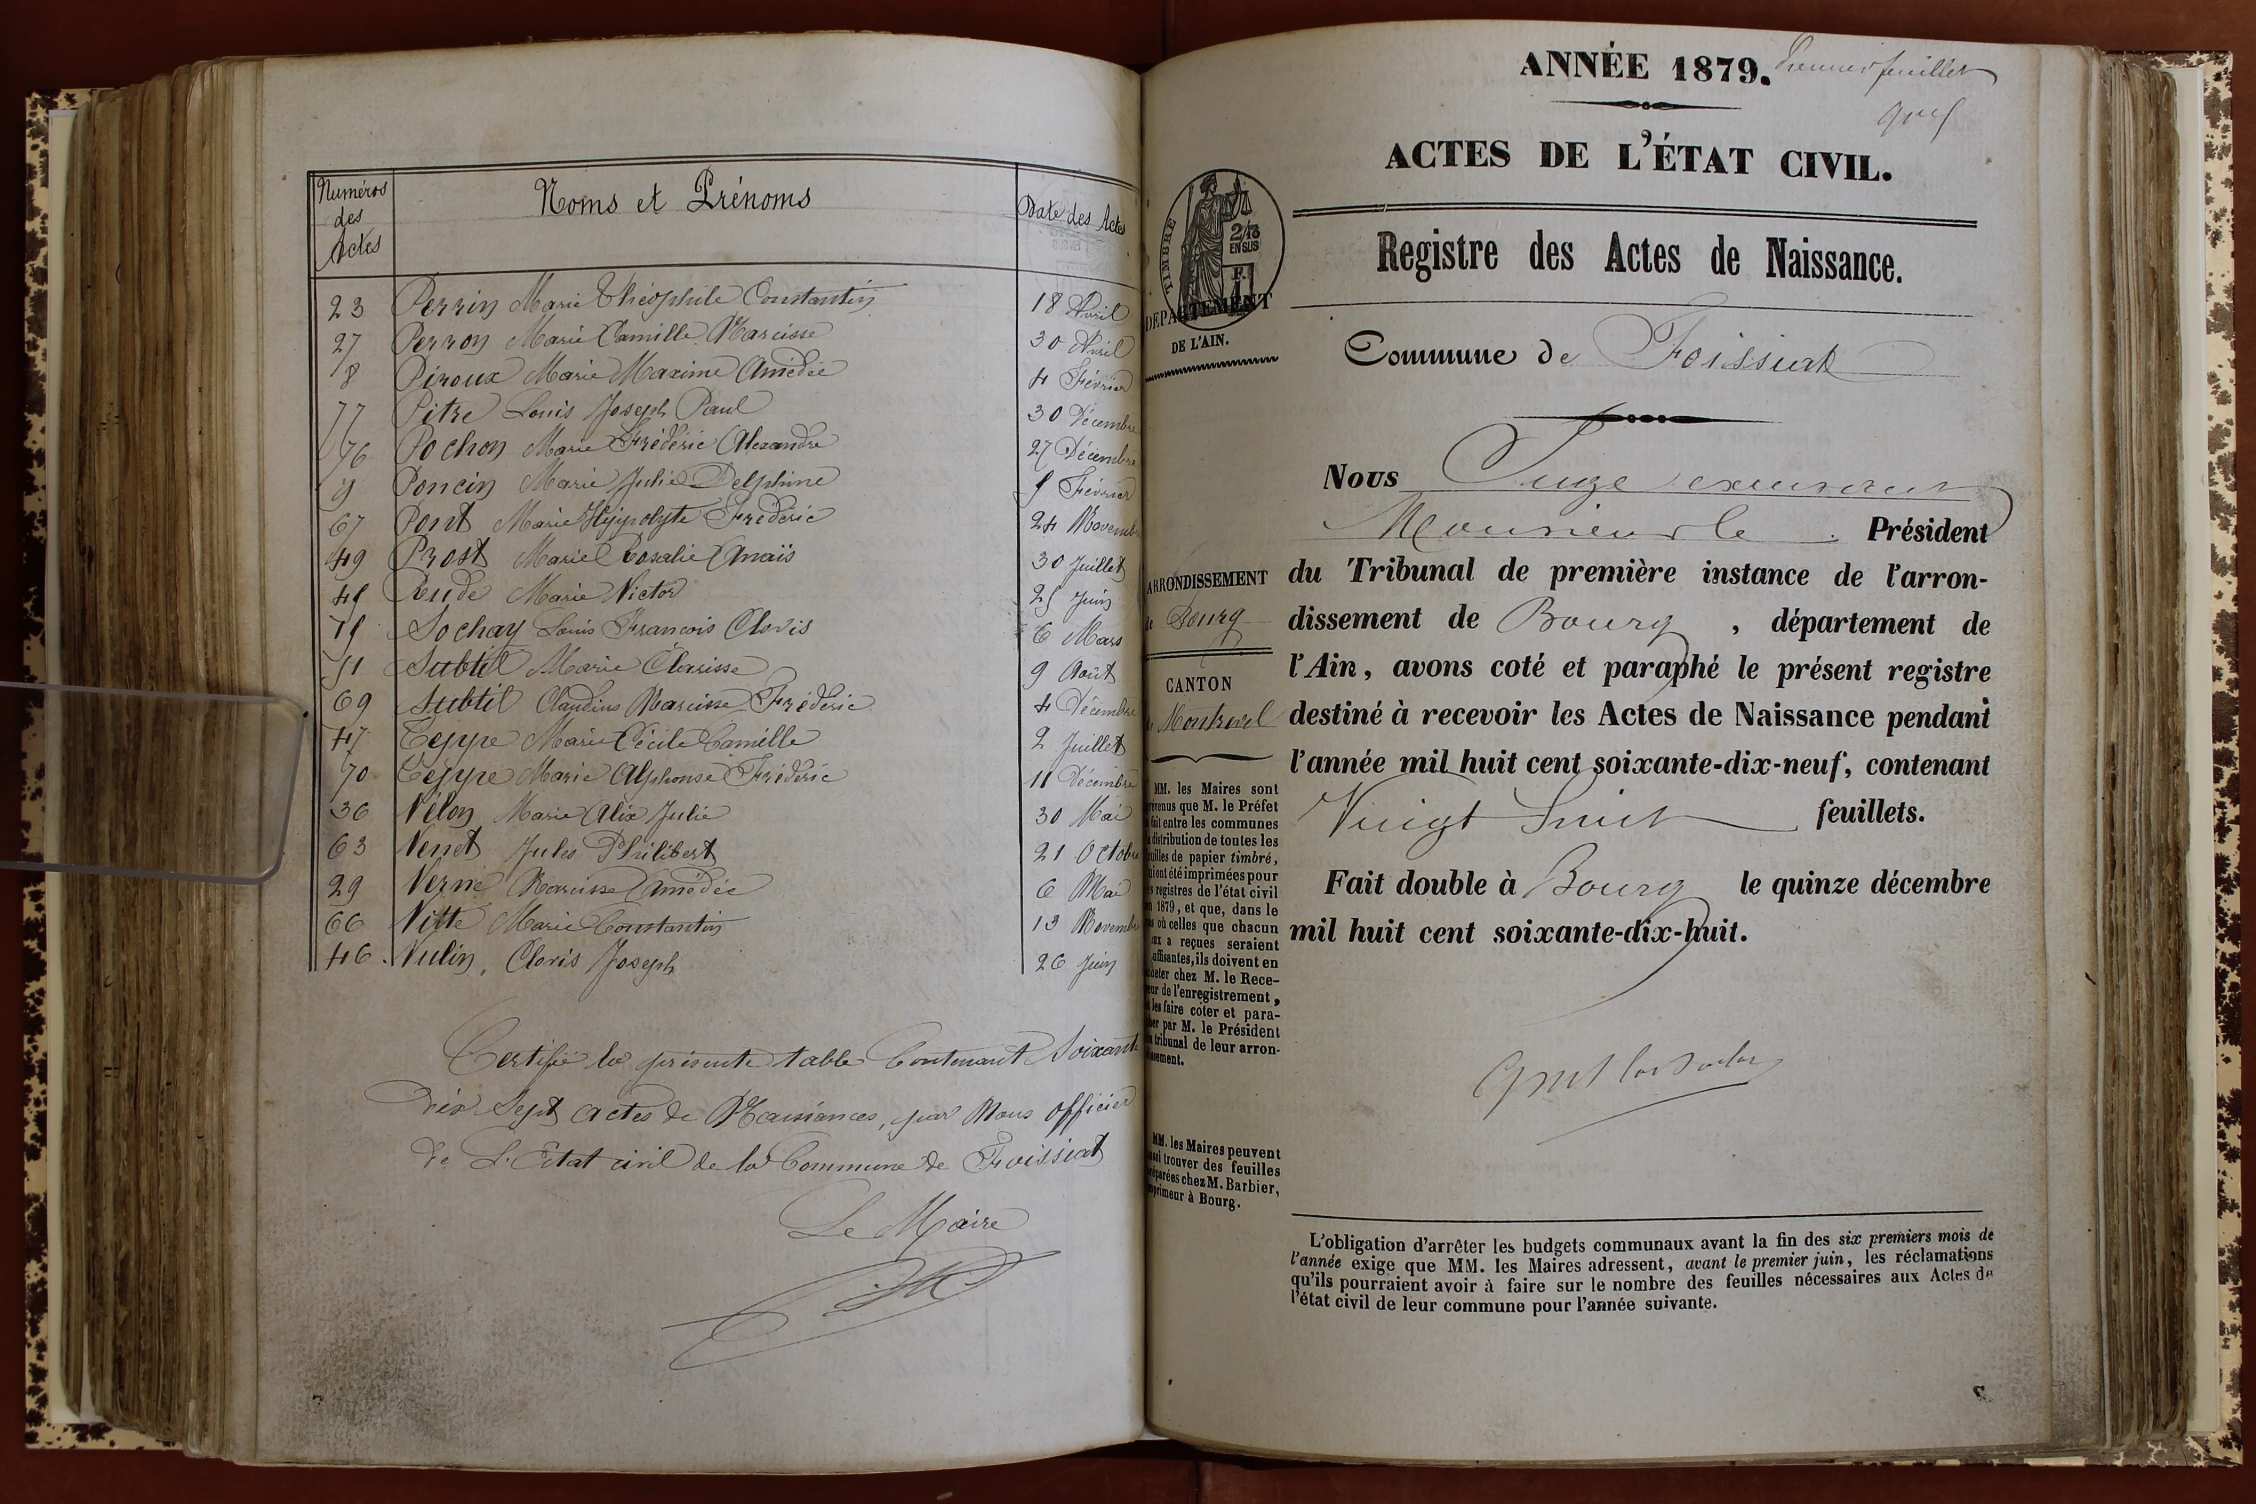 Numéros des Actes
Noms et Prénoms
Date des Actes
23 Perrin Marie Théophile Constantin 18 Avril
27 Perron Marie Camille Narcisse 30 Avril
8 Piroux Marie Maxime Amédée 4 Février
77 Pitre Louis Joseph Paul 30 Décembre
76 Pochon Marie Frédéric Alexandre 27 Décembre
9 Poncin Marie Julie Delphine 5 Février
67 Pont Marie Hyppolyte Frédéric 24 Novemb
49 Prost Marie Rosalie Anaïs 30 Juillet
45 Rude Marie Victor 25 Juin
15 Sochay Louis François Clovis 6 Mars
51 Subtil Marie Clarisse 9 Août
69 Subtil Claudius Narcisse Frédéric 4 Décembre
47 Teppe Marie Cécile Camille 2 Juillet
70 Teppe Marie Alphonse Frédéric 11 Décembre
36 Vélon Marie Alix Julie 30 Mai
63 Venet Jules Philibert 21 Octobre
29 Verne Narcisse Amédée 6 Mai
66 Vitte Marie Constantin 13 Novembre
46 Vulin, Cloris Joseph 26 Juin
Certifié la présente table Contenant Soixante
Dix Sept actes de Naissances, par Nous officier
de L'Etat civil de la Commune de Foissiat
Le Maire
ANNÉE 1879.
Premier feuillet
ACTES DE L'ÉTAT CIVIL.
Registre des Actes de Naissance.
TIMBRE
2/10
EN SUS
DEPARTEMENT
DE L'AIN.
Commune de Foissiat
Nous Juge exerçant
Monsieur le Président
du Tribunal de première instance de l'arron-
dissement de Bourg, département de
l'Ain, avons coté et paraphé le présent registre
destiné à recevoir les Actes de Naissance pendant
l'année mil huit cent soixante-dix-neuf, contenant
Vingt huit feuillets.
Fait double à Bourg le quinze décembre
mil huit cent soixante-dix-huit.
ARRONDISSEMENT
de Bourg
CANTON
de Montrevel
MM. les Maires sont
prévenus que M. le Préfet
fait entre les communes
distribution de toutes les
feuilles de papier timbré,
qui ont été imprimées pour
les registres de l'état civil
1879, et que, dans le
cas où celles que chacun
eux a reçues seraient
suffisantes, ils doivent en
acheter chez M. le Rece-
veur de l'enregistrement,
les faire coter et para-
pher par M. le Président
tribunal de leur arron-
dissement.
MM. les Maires peuvent
aussi trouver des feuilles
préparées chez M. Barbier,
imprimeur à Bourg.
L'obligation d'arrêter les budgets communaux avant la fin des six premiers mois de
l'année exige que MM. les Maires adressent, avant le premier juin, les réclamations
qu'ils pourraient avoir à faire sur le nombre des feuilles nécessaires aux Actes de
l'état civil de leur commune pour l'année suivante.